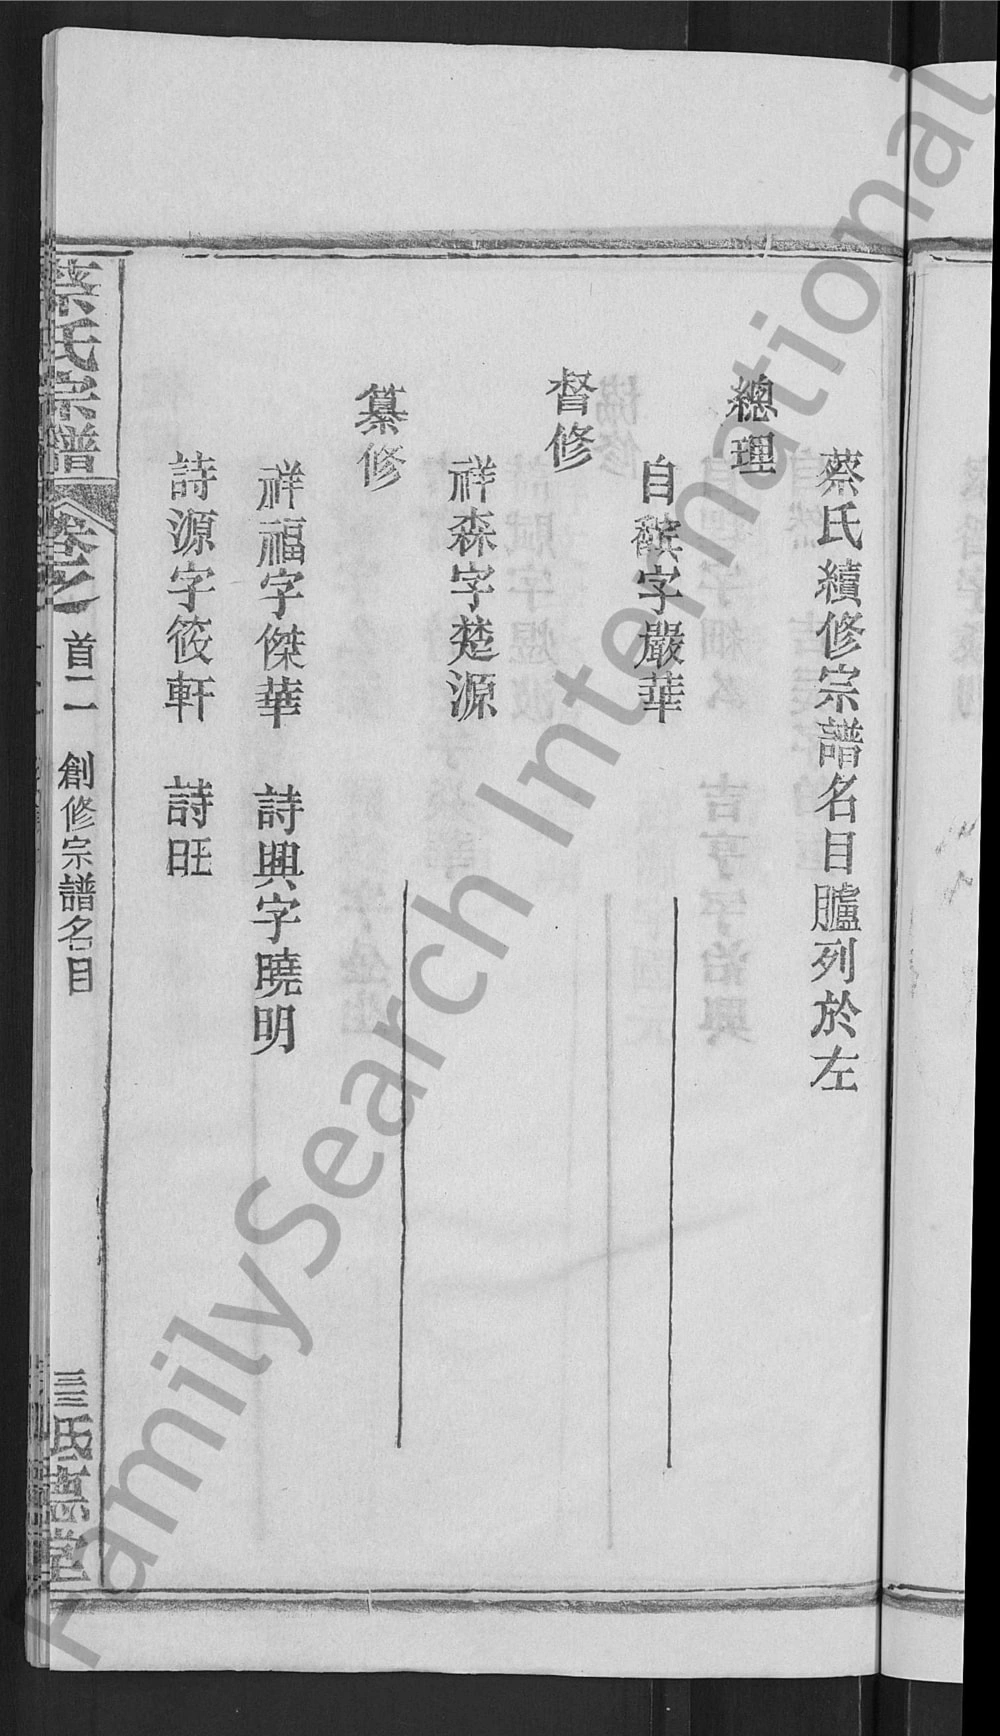 蔡氏續修宗譜名目臚列於左
總理
自鑌字嚴華
督修
祥森字楚源
纂修
祥福字傑華　詩興字曉明
詩源字筱軒　詩旺
蔡氏宗譜
卷之
首二
創修宗譜名目
氏
堂
FamilySearch International